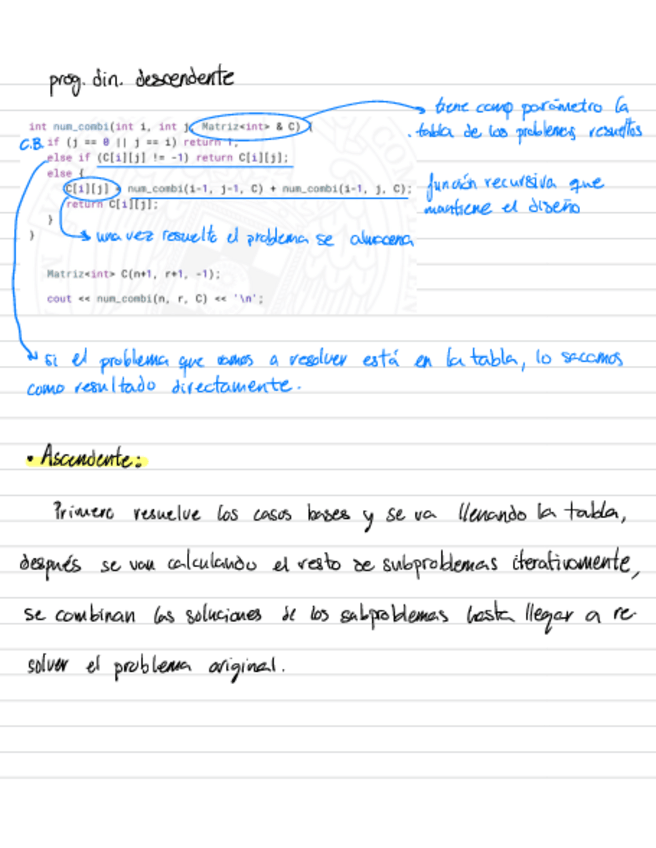 prog. din. descendente
tiene como parámetro la
tabla de los problemas resueltos
int num_combi(int i, int j, Matriz<int> & C) {
C.B. if (j == 0 || j == i) return 1;
else if (C[i][j] != -1) return C[i][j];
else {
C[i][j] = num_combi(i-1, j-1, C) + num_combi(i-1, j, C);
función recursiva que
mantiene el diseño
return C[i][j];
}
una vez resuelto el problema se almacena
}
Matriz<int> C(n+1, r+1, -1);
cout << num_combi(n, r, C) << '\n';
si el problema que vamos a resolver está en la tabla, lo sacamos
como resultado directamente.
• Ascendente:
Primero resuelve los casos bases y se va llenando la tabla,
después se van calculando el resto de subproblemas iterativamente,
se combinan las soluciones de los subproblemas hasta llegar a re-
solver el problema original.